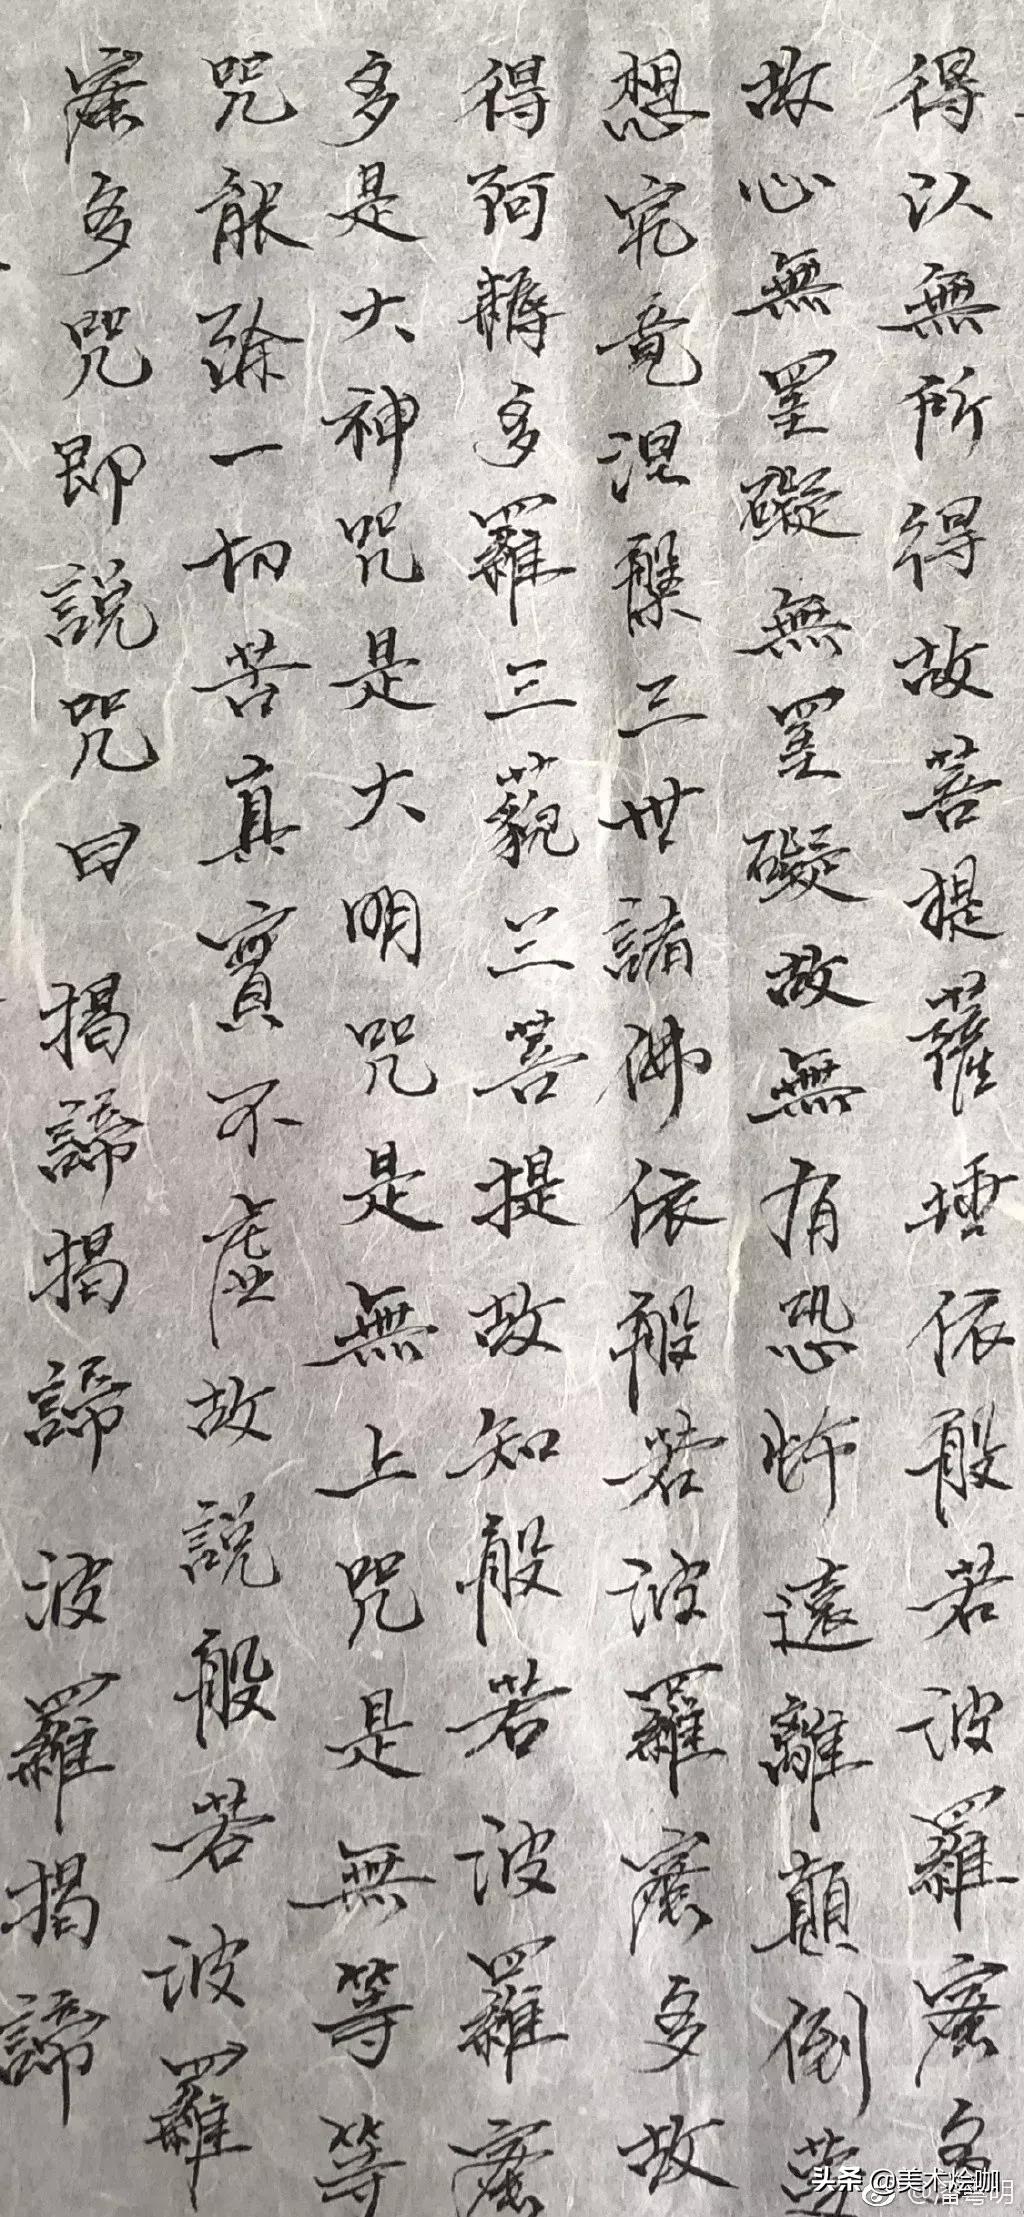 得以無所得故菩提薩埵依般若波羅蜜多
故心無罣礙無罣礙故無有恐怖遠離顛倒夢
想究竟涅槃三世諸佛依般若波羅蜜多故
得阿耨多羅三藐三菩提故知般若波羅蜜
多是大神咒是大明咒是無上咒是無等等
咒能除一切苦真實不虛故說般若波羅
蜜多咒即說咒曰 揭諦揭諦 波羅揭諦
头条 @美术烩咖
@潘粤明